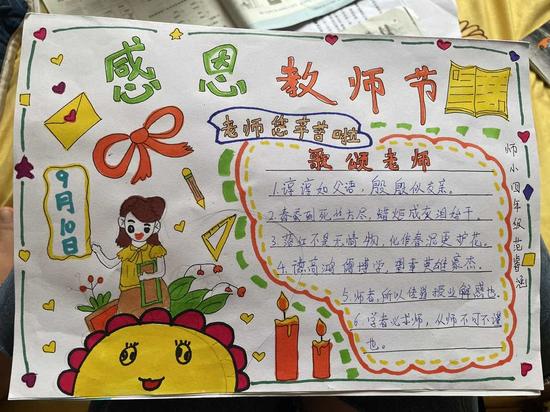 感恩教师节
老师您辛苦啦
9月10日
歌颂老师
1.谆谆如父语,殷殷似友亲。
2.春蚕到死丝方尽,蜡炬成灰泪始干。
3.落红不是无情物,化作春泥更护花。
4.德高鸿儒博学,望重英雄豪杰。
5.师者,所以传道授业解惑也。
6.学者必求师,从师不可不谨
也。
师小四年级范睿涵